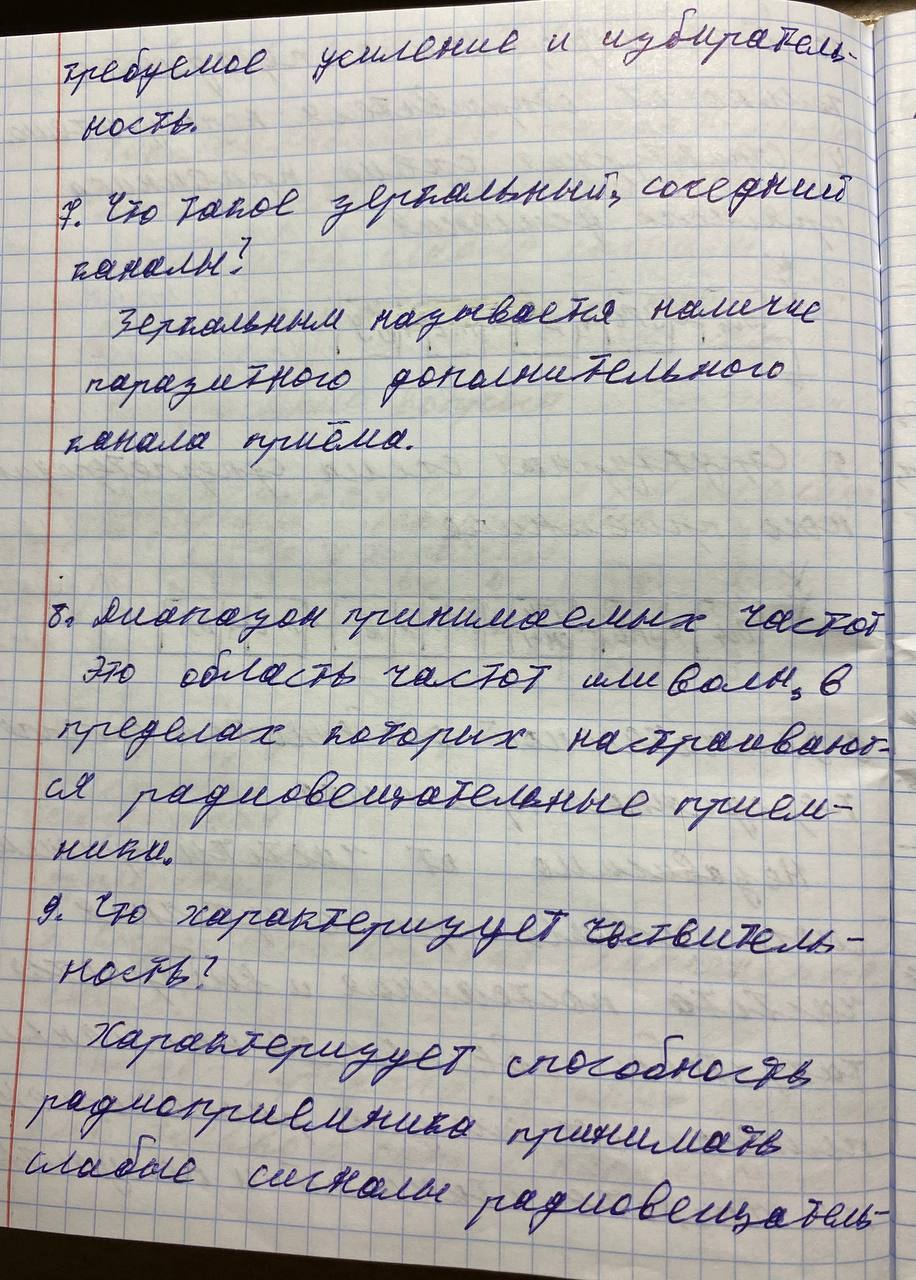 требуемое усиление и избиратель-
ность.
7. Что такое зеркальный, соседний
каналы?
Зеркальным называется наличие
паразитного дополнительного
канала приёма.
8. Диапазон принимаемых частот
это область частот или волн, в
пределах которих настраивают-
ся радиовещательные прием-
ники.
9. Что характеризует чувствитель-
ность?
Характеризует способность
радиоприемника принимать
слабые сигналы радиовещатель-